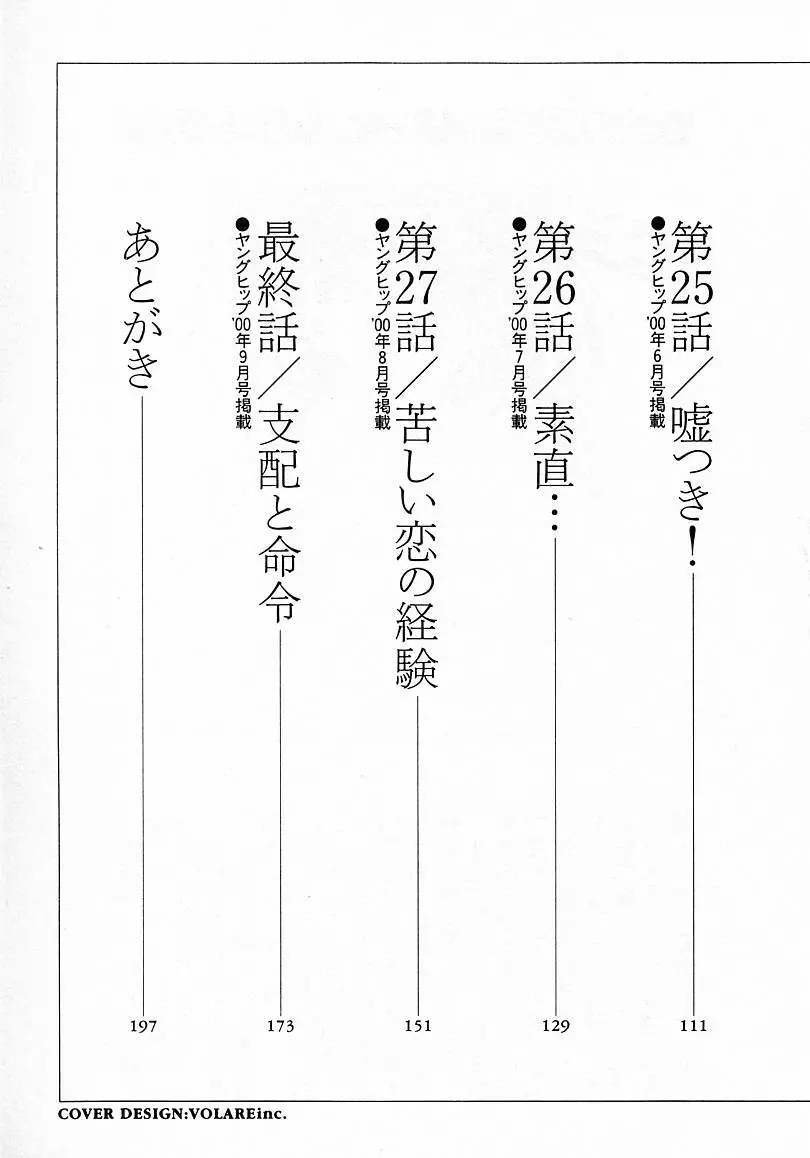 第25話／嘘つき！
111
●ヤングヒップ'00年6月号掲載
第26話／素直…
129
●ヤングヒップ'00年7月号掲載
第27話／苦しい恋の経験
151
●ヤングヒップ'00年8月号掲載
最終話／支配と命令
173
●ヤングヒップ'00年9月号掲載
あとがき
197
COVER DESIGN:VOLAREinc.